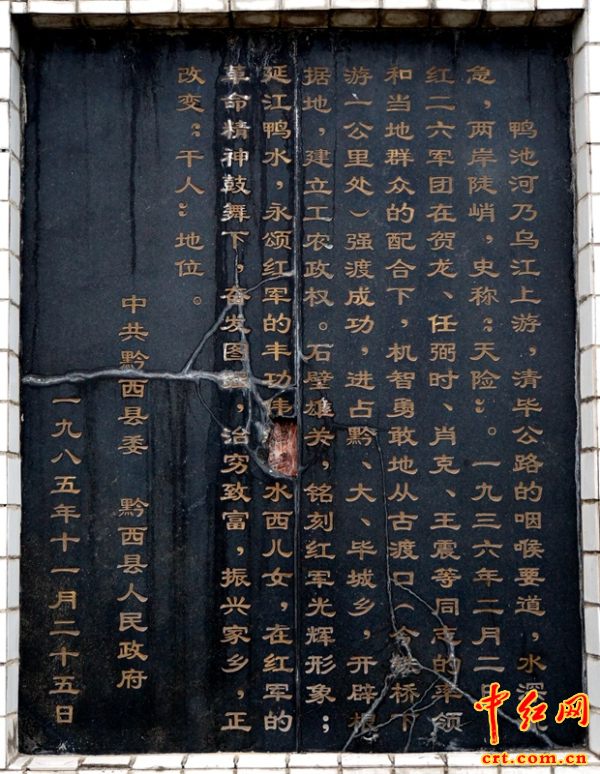 鸭池河乃乌江上游，清毕公路的咽喉要道，水深
急，两岸陡峭，史称：天险：。一九三六年二月二日
红二六军团在贺龙、任弼时、肖克、王震等同志的率领
和当地群众的配合下，机智勇敢地从古渡口（今铁桥下
游一公里处）强渡成功，进占黔、大、毕城乡，开辟根
据地，建立工农政权。石壁雄关，铭刻红军光辉形象；
延江鸭水，永颂红军的丰功伟 水西儿女，在红军的
革命精神鼓舞下，奋发图强，治穷致富，振兴家乡，正
改变：干人：地位。
中共黔西县委 黔西县人民政府
一九八五年十一月二十五日
中红网
crt.com.cn